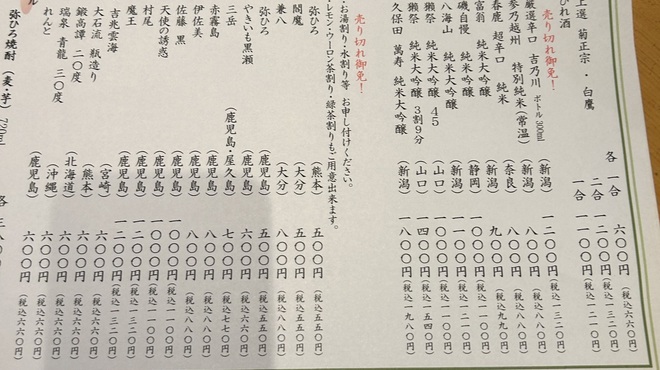 上選 菊正宗・白鷹 各 一合 六〇〇円 (税込六六〇円)
二合 一二〇〇円 (税込一三二〇円)
ひれ酒 一合 一一〇〇円 (税込一二一〇円)
売り切れ御免！
厳選辛口 吉乃川 ボトル300ml (新潟) 一二〇〇円 (税込一三二〇円)
参乃越州 特別純米(常温) (新潟) 八〇〇円 (税込八八〇円)
春鹿 超辛口 純米 (奈良) 八〇〇円 (税込八八〇円)
富翁 純米大吟醸 (新潟) 九〇〇円 (税込九九〇円)
磯自慢 純米吟醸 (静岡) 一〇〇〇円 (税込一一〇〇円)
八海山 純米大吟醸 (新潟) 一一〇〇円 (税込一二一〇円)
獺祭 純米大吟醸 45 (山口) 一一〇〇円 (税込一二一〇円)
獺祭 純米大吟醸 3割9分 (山口) 一四〇〇円 (税込一五四〇円)
久保田 萬寿 純米大吟醸 (新潟) 一八〇〇円 (税込一九八〇円)
売り切れ御免！
・お湯割り・水割り等 お申し付けください。
・レモン・ウーロン茶割り・緑茶割りもご用意出来ます。
弥ひろ (熊本) 五〇〇円 (税込五五〇円)
閻魔 (大分) 五〇〇円 (税込五五〇円)
兼八 (大分) 八〇〇円 (税込八八〇円)
弥ひろ (鹿児島) 五〇〇円 (税込五五〇円)
やきいも黒瀬 (鹿児島) 六〇〇円 (税込六六〇円)
三岳 (鹿児島・屋久島) 七〇〇円 (税込七七〇円)
赤霧島 (鹿児島) 八〇〇円 (税込八八〇円)
伊佐美 (鹿児島) 八〇〇円 (税込八八〇円)
佐藤 黒 (鹿児島) 一〇〇〇円 (税込一一〇〇円)
天使の誘惑 (鹿児島) 一〇〇〇円 (税込一一〇〇円)
村尾 (鹿児島) 一二〇〇円 (税込一三二〇円)
魔王 (鹿児島) 一二〇〇円 (税込一三二〇円)
吉兆雲海 (宮崎) 六〇〇円 (税込六六〇円)
大石流 瓶造り (熊本) 六〇〇円 (税込六六〇円)
鍛高譚 二〇度 (北海道) 六〇〇円 (税込六六〇円)
瑞泉 青龍 三〇度 (沖縄) 六〇〇円 (税込六六〇円)
れんと (鹿児島) 六〇〇円 (税込六六〇円)
ル
弥ひろ焼酎 (麦・芋) 720ml 各 三八